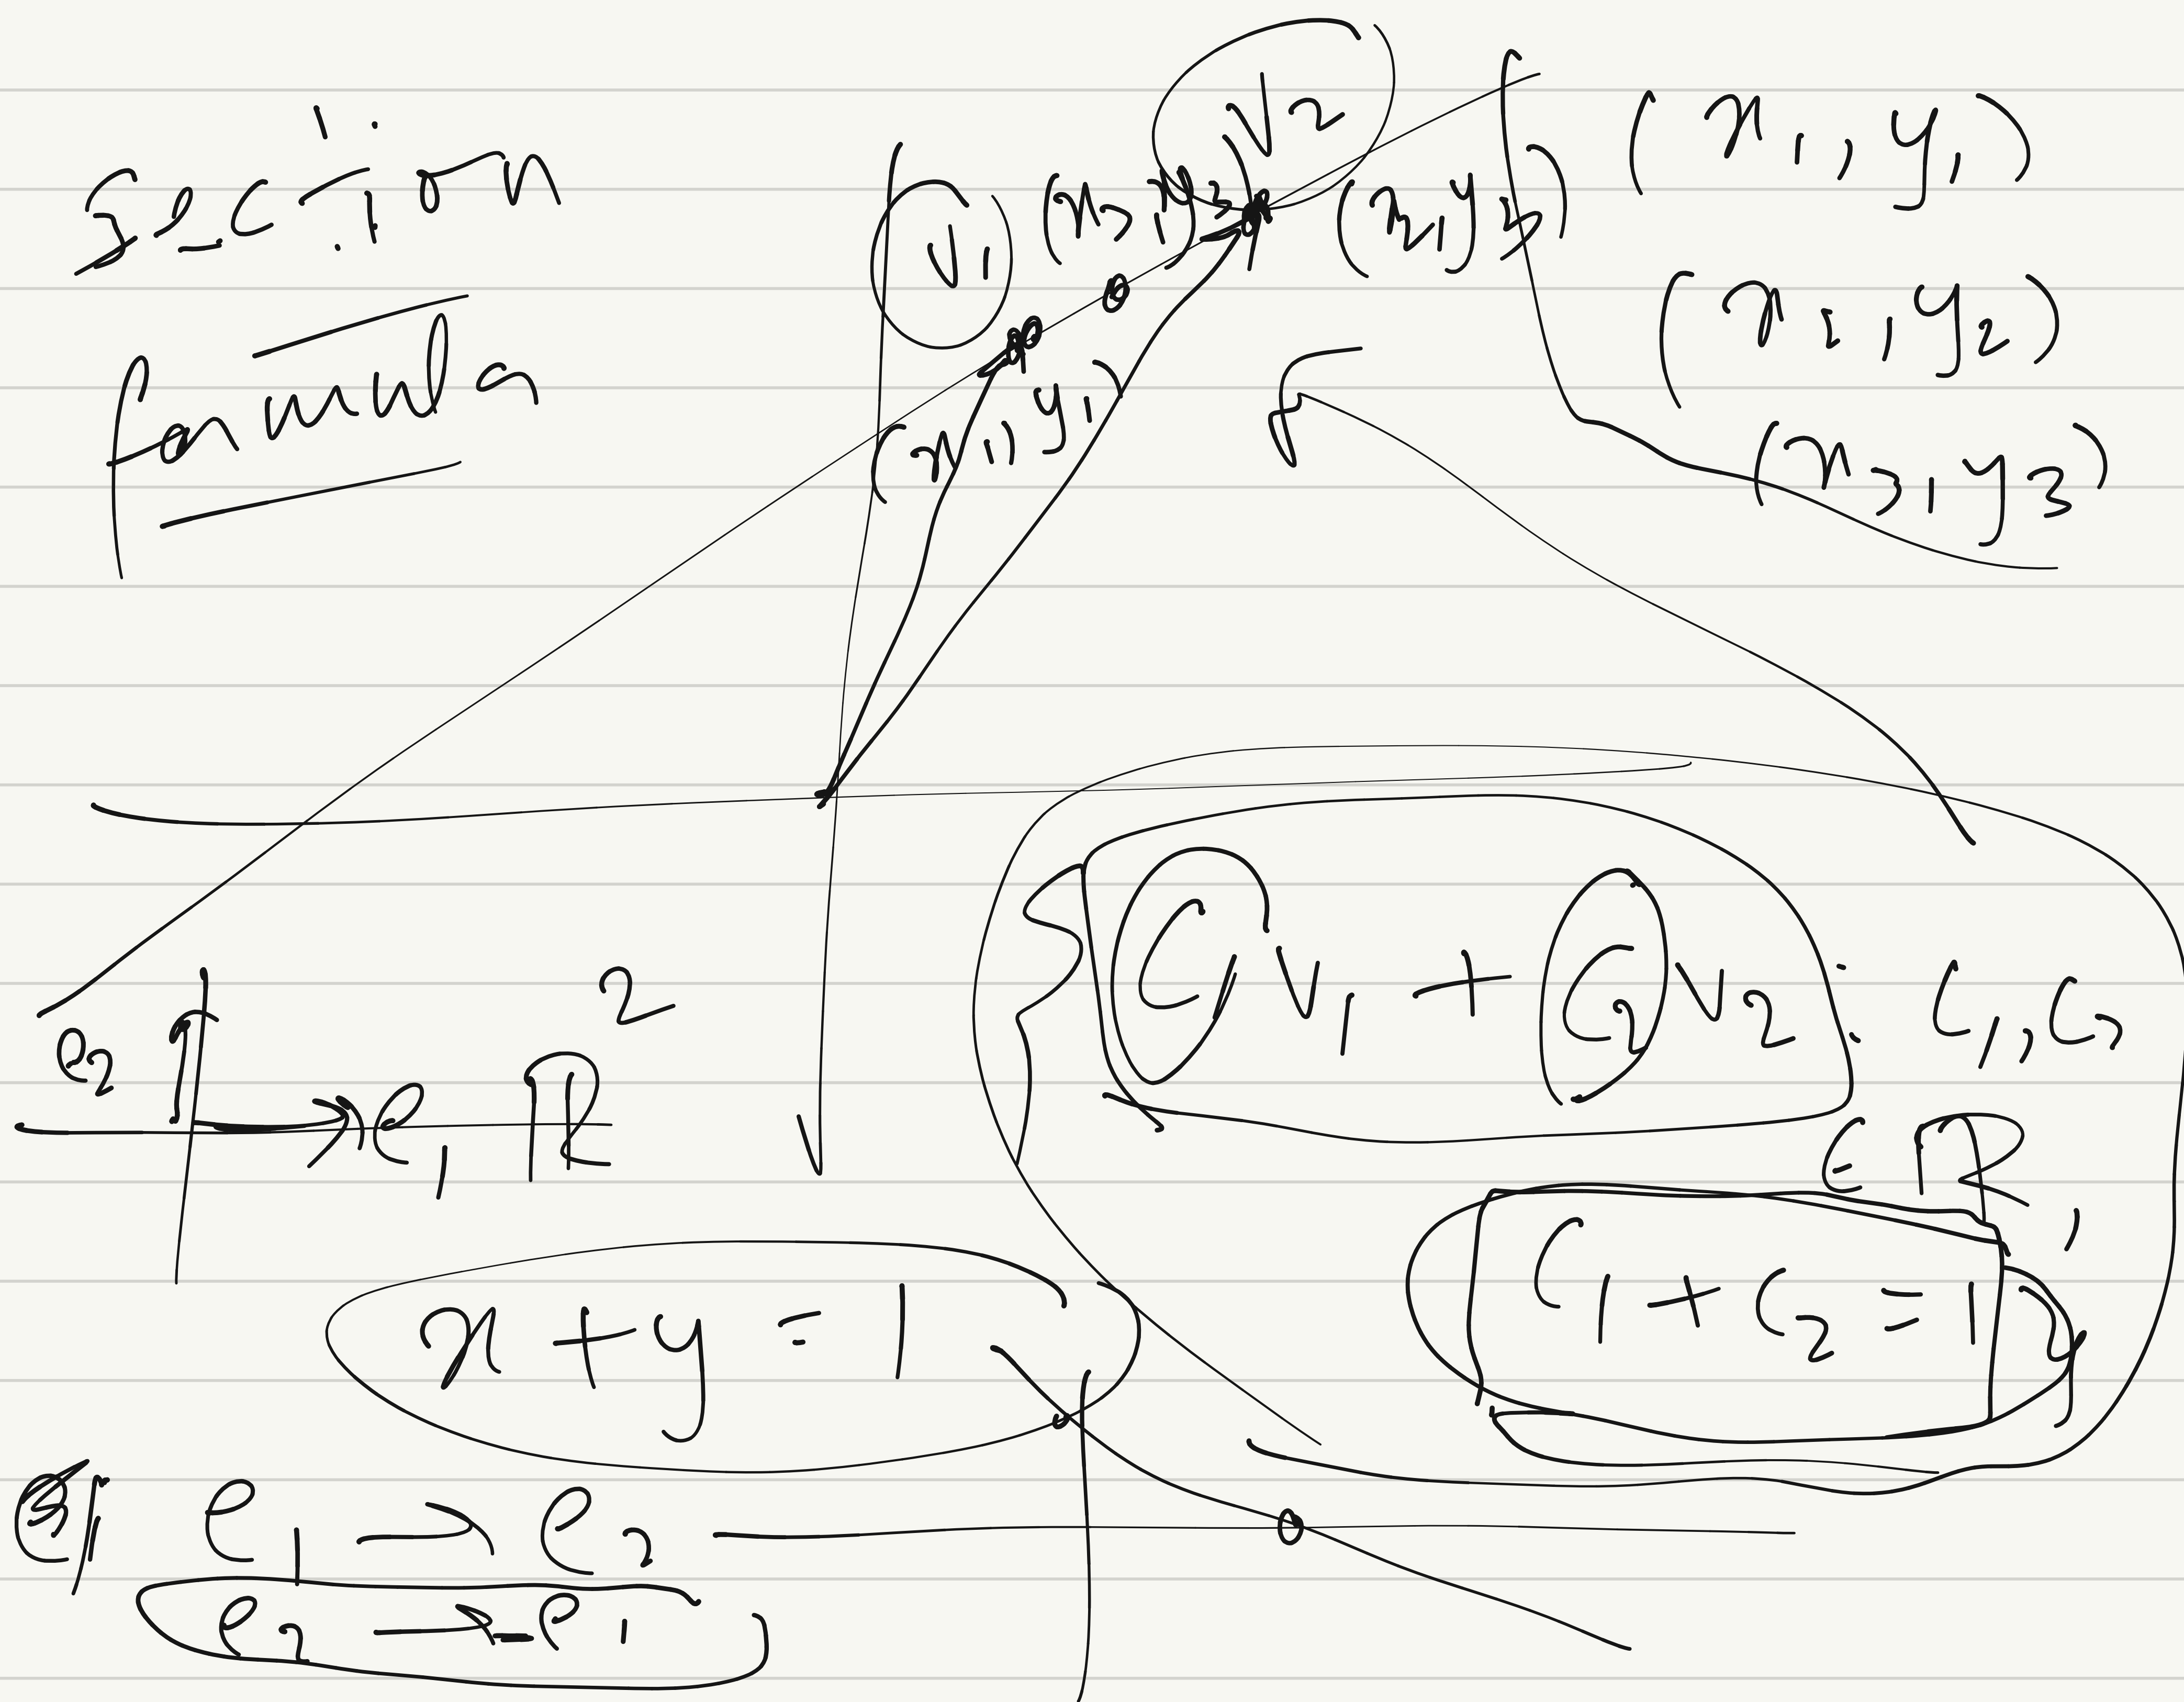 Section
formula
V₁
V₂
(x₂, y₂)
(x₃, y₃)
(x₁, y₁)
(x₁, y₁)
(x₂, y₂)
(x₃, y₃)
{ C₁V₁ + C₂V₂ : C₁, C₂
∈ ℝ,
C₁ + C₂ = 1 }
e₂
e₁
ℝ²
x + y = 1
e₁ → e₂
e₂ → -e₁